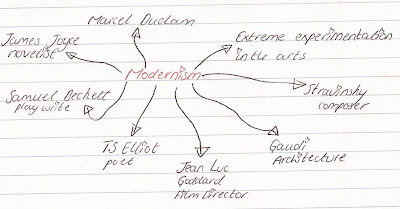 Marcel Ducham
James Joyce
novelist
Extreme experimentation
in the arts
Modernism
Samuel Beckett
play write
Stravinsky
composer
TS Elliot
poet
Jean Luc
Goddard
Film Director
Gaudi
Architecture